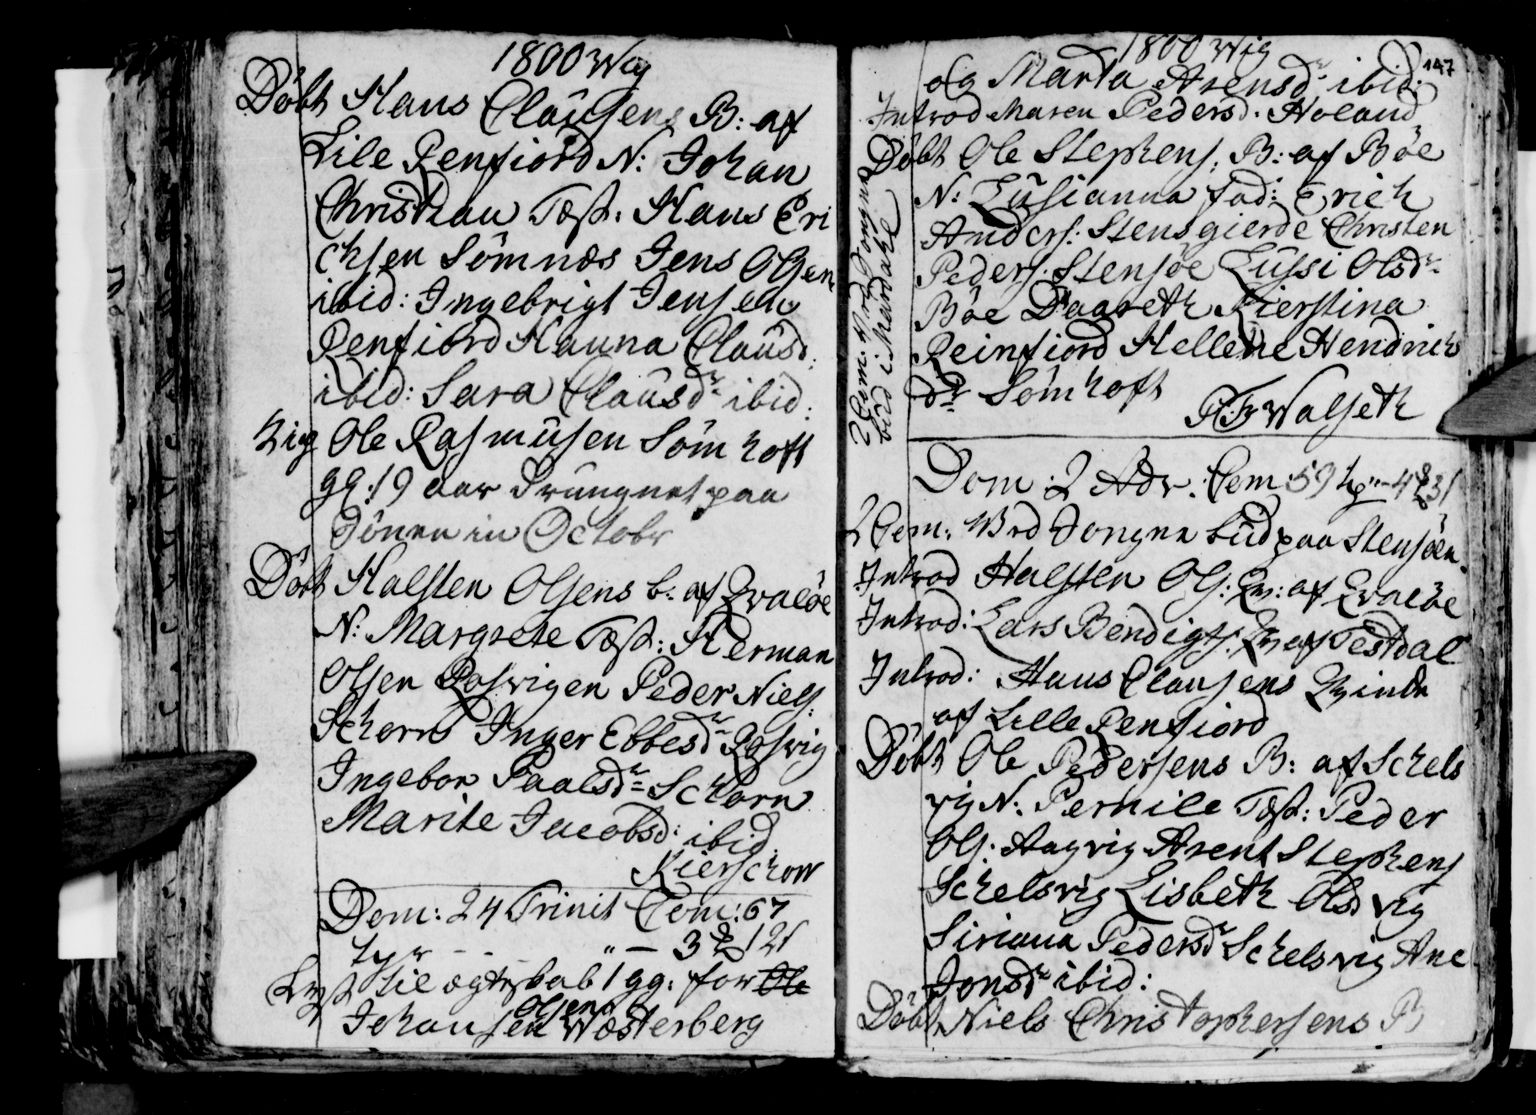 1800 Wig
Døbt Hans Clausens B: af
Lille Renfiord N: Johan
Christian Test: Hans Eri
chsen Sømnæs Jens Olsen
ibid: Ingebrigt Jensen
Renfiord Hanna Clausd:
ibid: Sara Clausdr ibid:
Ole Rasmusen Sømhoft
gl: 19 aar drungnet paa
Dönen in Octobr
Døbt Halsten Olsens b: af Qvaløe
N: Margrete Test: Herman
Olsen Rosvigen Peder Niels:
Schorn Inger Ebbesdr Rosvig
Ingebor Paalsdr Schorn
Marite Jacobsd: ibid:
Kierschow
Dom: 24 Trinit Com: 67
til ægteskab 1 gg: for Ole
Olsen
Johansen Wæsterberg
1800 Wig
147
og Marta Arensdr ibid:
Introd Maren Pedersd: Holand
Døbt Ole Stephens: B: af Bøe
N: Lusianna fad: Erich
Anders: Stensgierde Christen
Peders: Stensøe Lussi Olsdr
Bøe Daareth Kierstina
Reinfiord Hellene Hendrich
dr Sømhoft
Walseth
Dom: 2 Adv: Com: 59
2 Com: Jongne bud paa Stensøen
Introd Halsten Ols: Qv: af Qvaløe
Introd: Lars Bendigts: Qv af Testdal
Introd: Hans Clausens Qvinde
af Lille Renfiord
Døbt Ole Pedersens B: af Schels
vig N: Pernile Test: Peder
Ols: Aagvig Arent Stephens
Schelsvig Lisbeth Olsd vig
Siriana Pedersdr Schelsvig Ane
Jonsdr ibid:
Døbt Niels Christophersens B